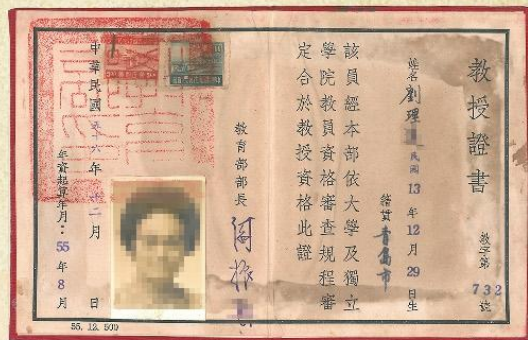 教授證書
教字第732號
姓名劉理 民國13年12月29日生
籍貫青島市
該員經本部依大學及獨立
學院教員資格審查規程審
定合於教授資格此證
教育部部長 閻振
中華民國五六年 月 日
年資起算年月：55年8月
55.12.500